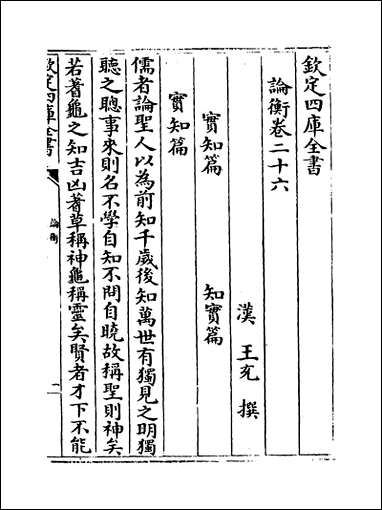 欽定四庫全書
論衡卷二十六
漢 王充 撰
實知篇 知實篇
實知篇
儒者論聖人以為前知千歲後知萬世有獨見之明獨
聽之聰事來則名不學自知不問自曉故稱聖則神矣
若蓍龜之知吉凶蓍草稱神龜稱靈矣賢者才下不能
欽定四庫全書
論衡
一